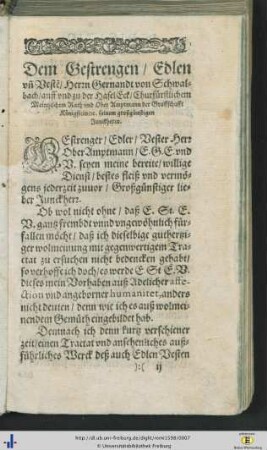 Dem Gestrengen / Edlen
vñ Vestẽ / Herrn Gernandt von Schwal-
bach / auff vnd zu der Hasel Eck / Churfürstlichem
Maintzischen Rath vnd Ober Amptmann der Graffschafft
Königsteinn / seinem großgünstigen
Junckherrn.
GEstrenger / Edler / Vester Herr
Ober Amptmann / E. G. E vnd
V. seyen meine bereite / willige
Dienst / bestes fleiß vnd vermö-
gens jederzeit zuuor / Großgünstiger lie-
ber Junckherr.
Ob wol nicht ohne / daß E. St. E.
V. gantz frembd vnnd vngewöhnlich für-
fallen möcht / daß ich dieselbige gutherti-
ger wolmeinung mit gegenwertigem Tra-
ctat zu ersuchen nicht bedencken gehabt /
so verhoffe ich doch / es werde E St E. V.
dieses mein Vorhaben auß Adelicher affe-
ction vnd angeborner humanitet, anders
nicht deuten / denn wie ich es auß wolmei-
nendem Gemüth eingebildet hab.
Demnach ich denn kurtz verschiener
zeit / einen Tractat vnd ansehenliches auß-
führliches Werck deß auch Edlen Vesten
):( ij
http://dl.ub.uni-freiburg.de/diglit/rixner1598/0007
© Universitätsbibliothek Freiburg